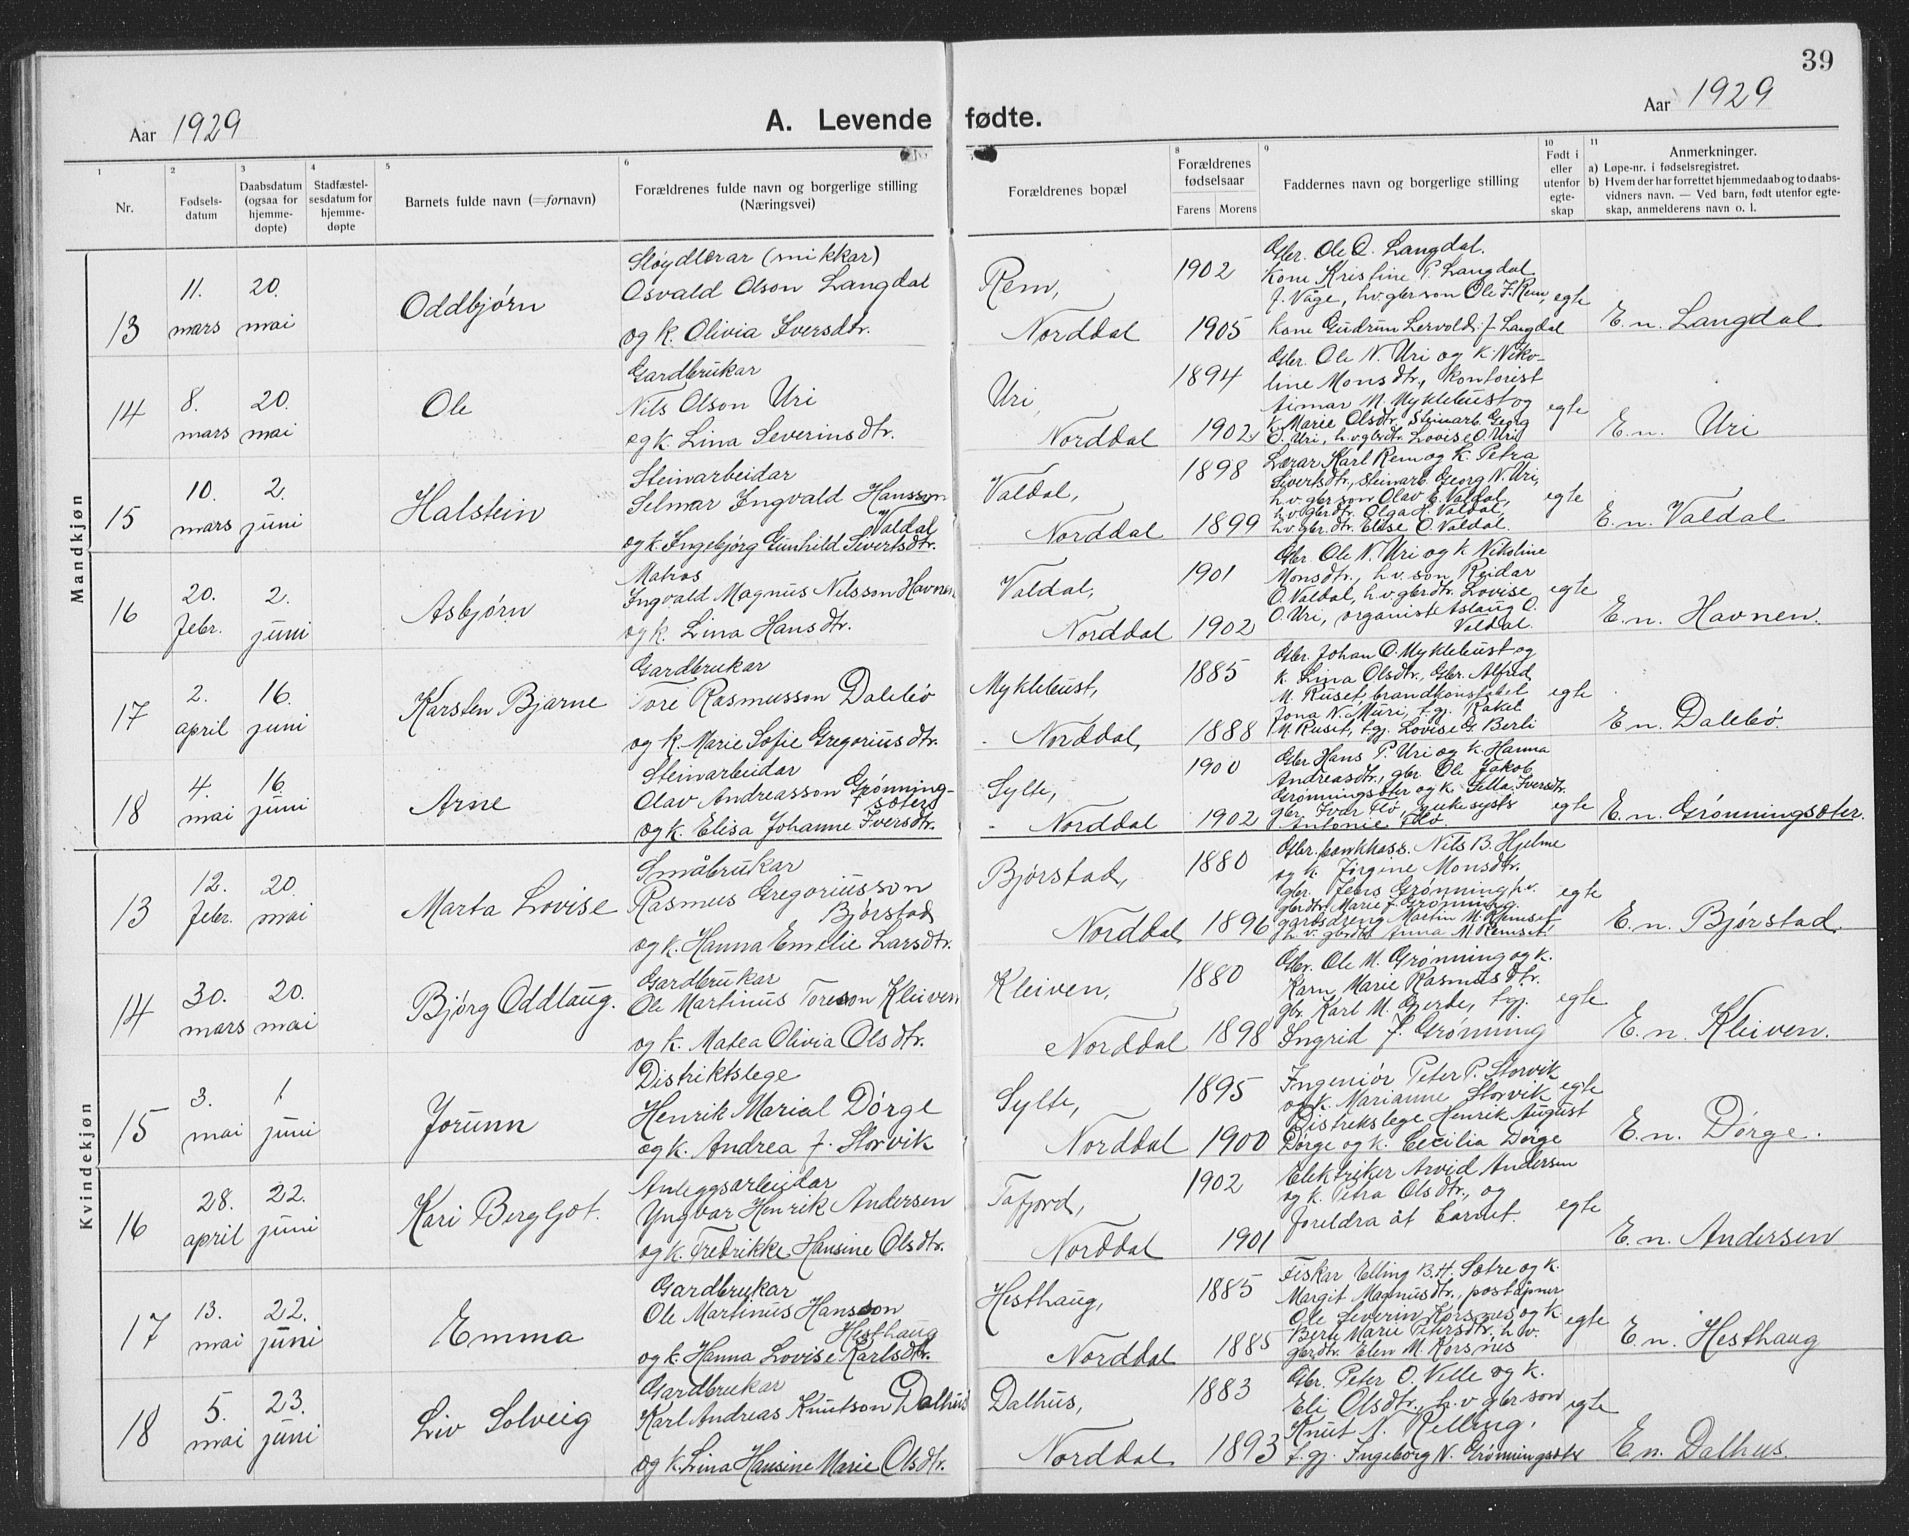 39
Aar 1929
A. Levende fødte.
Aar 1929
1
2
3
4
5
6
8
9
10
11
Nr.
Fødsels-
datum
Daabsdatum
(ogsaa for
hjemme-
døpte)
Stadfæstel-
sesdatum for
hjemme-
døpte
Barnets fulde navn (=fornavn)
Forældrenes fulde navn og borgerlige stilling
(Næringsvei)
Forældrenes bopæl
Forældrenes
fødselsaar
Farens Morens
Faddernes navn og borgerlige stilling
Født i
eller
utenfor
egte-
skap
Anmerkninger.
a) Løpe-nr. i fødselsregistret.
b) Hvem der har forrettet hjemmedaab og to daabs-
vidners navn. — Ved barn, født utenfor egte-
skap, anmelderens navn o. l.
Mandkjøn
13
11.
mars
20.
mai
Oddbjørn
Sløydlærar (snikkar)
Osvald Olson Langdal
og k. Olivia Iversdtr.
Rem,
Norddal
1902
1905
Gbr. Ole O. Langdal.
Kone Kristine P. Langdal
f. Våge, h.v. gbr son Ole J. Rem,
kone Gudrun Lervold f. Langdal
egte
E. n. Langdal
14
8.
mars
20.
mai
Ole
Gardbrukar
Nils Olson Uri
og k. Lina Severinsdtr.
Uri,
Norddal
1894
1902
Gbr. Ole N. Uri og k. Niko-
line Monsdtr., kontorist
M. Myklebust og
k. Marie Olsdtr. Steinarb. Georg
O. Uri, h.v. gbrdtr. Lovise O. Uri
egte
E. n. Uri
15
10.
mars
2.
juni
Halstein
Steinarbeidar
Selmar Ingvald Hansson
Valdal
og k. Ingebjørg Gunhild Sivertsdtr.
Valdal,
Norddal
1898
1899
Lærar Karl Rem og k. Petra
Sivertsdtr., Steinarb. Georg N. Uri,
h.v. gbr son Olav E. Valdal,
h.v. gbrdtr. Olga H. Valdal,
h.v. gbr. dtr. Elise O. Valdal.
egte
E. n. Valdal
16
20.
febr.
2.
juni
Asbjørn
Matros
Ingvald Magnus Nilsson Havnen
og k. Lina Hansdtr.
Valdal,
Norddal
1901
1902
Gbr. Ole N. Uri og k. Nikoline
Monsdtr., h.v. son Reidar
O. Valdal, h.v. gbrdtr. Lovise
O. Uri, organist Aslaug O.
Valdal.
egte
E. n. Havnen.
17
2.
april
16.
juni
Karsten Bjarne
Gardbrukar
Tore Rasmusson Dalebø
og k. Marie Sofie Gregoriusdtr.
Myklebust,
Norddal,
1885
1888
Gbr. Johan O. Myklebust og
k. Lina Olsdtr., Gbr. Alfred
M. Ruset, brandkonstabel
Jona N. Muri, t.gj. Rakel
M. Ruset, t.gj. Lovise G. Berli
egte
E. n. Dalebø
18
4.
mai
16.
juni
Arne
Steinarbeidar
Olav Andreasson Grønning-
sæter
og k. Elisa Johanne Iversdtr.
Sylte,
Norddal
1900
1902
Gbr Hans P. Uri og k. Hanna
Andreasdtr., gbr. Ole Jakob
Grønningsæter og k. Iversdtr.
gbr. Ivar Flø, sjukesyster
Antonie Flø.
egte
E. n. Grønningsæter.
Kvindekjøn
13
12.
febr.
20.
mai
Marta Lovise
Småbrukar
Rasmus Gregoriusson
Bjørstad
og k. Hanna Emelie Larsdtr.
Bjørstad,
Norddal
1880
1896
Gbr. bankkass. Nils B. Hjelme
og k. Jørgine Monsdtr.
gbr. Jens Grønning h.v.
gbrdtr. Marie J. Grønning.
gardsdreng Martin M. Remset
h.v. gbrdtr. Anna M. Remset.
egte
E. n. Bjørstad.
14
30.
mars
20.
mai
Bjørg Oddlaug.
Gardbrukar
Ole Martinus Toreson Kleiven
og k. Matea Olivia Olsdtr.
Kleiven,
Norddal
1880
1898
Gbr. Ole M. Grønning og k.
Karn Marie Rasmusdtr.
gbr. Karl M. Gjerde, t.gj.
Ingrid J. Grønning
egte
E. n. Kleiven.
15
3.
mai
1.
juni
Jorunn
Distriktslege
Henrik Marial Dørge
og k. Andrea f. Storvik
Sylte,
Norddal
1895
1900
Ingeniør Peter P. Storvik
og k. Marianne Storvik
Distrikslege Henrik August
Dørge og k. Cecilia Dørge
egte
E. n. Dørge.
16
28.
april
22.
juni
Kari Bergljot.
Anleggsarbeidar
Yngvar Henrik Andersen
og k. Fredrikke Hansine Olsdtr.
Tafjord,
Norddal
1902
1901
Elektriker Arvid Andersen
og k. Petra Olsdtr., og
foreldra åt barnet.
egte
E. n. Andersen
17
13.
mai
22.
juni
Emma
Gardbrukar
Ole Martinus Hansson
Hesthaug
og k. Hanna Lovise Karlsdtr.
Hesthaug,
Norddal
1885
1885
Fiskar Elling B.H. Sætre og k.
Margit Magnusdtr., poståpner
Ole Severin Korsnes og k.
Berte Marie Petersdtr., h.v.
gbrdtr. Elen M. Korsnes
egte
E. n. Hesthaug
18
5.
mai
23.
juni
Liv Solveig
Gardbrukar
Karl Andreas Knutson Dalhus
og k. Lina Hansine Marie Olsdtr.
Dalhus,
Norddal
1883
1893
Gbr. Peter O. Ville og k.
Eli Olsdtr., h.v gbr. son
Knut N. Relling,
t.gj. Ingeborg N. Grønningsæter
egte
E. n. Dalhus.